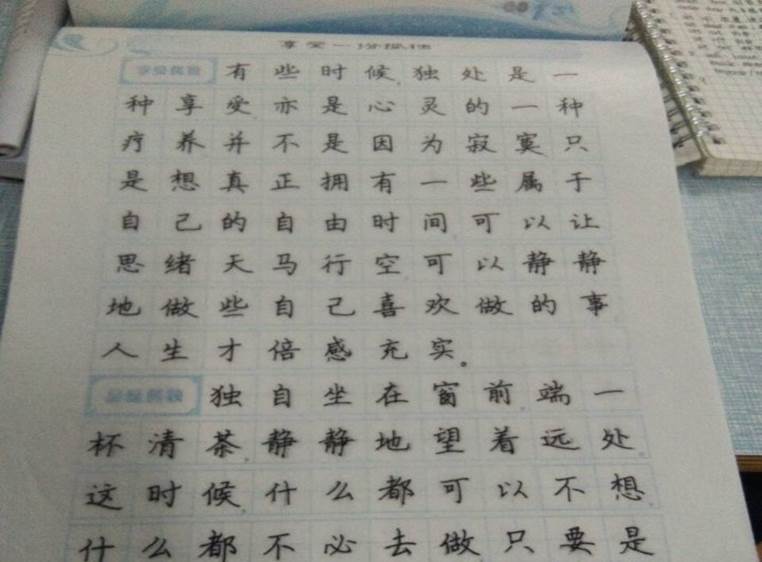 享受一份孤独
有些时候,独处是一
种享受,亦是心灵的一种
疗养,并不是因为寂寞,只
是想真正拥有一些属于
自己的自由时间,可以让
思绪天马行空,可以静静
地做些自己喜欢做的事,
人生才倍感充实。
独自坐在窗前,端一
杯清茶,静静地望着远处,
这时候,什么都可以不想,
什么都不必去做,只要是